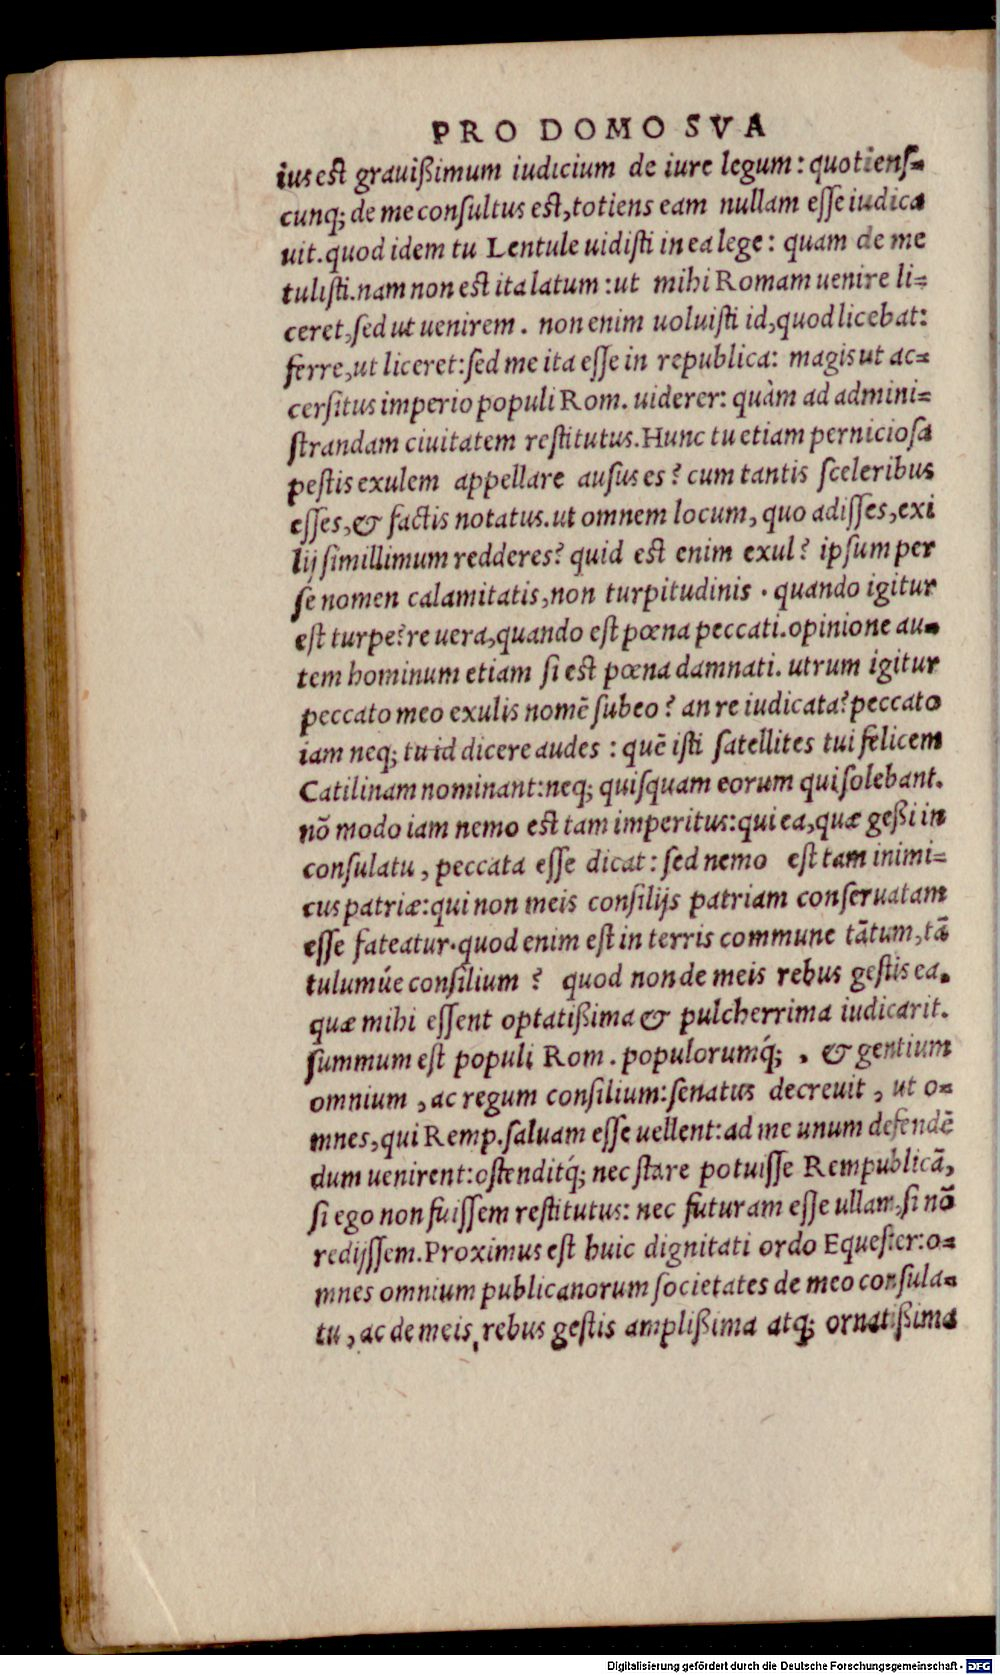 PRO DOMO SVA
ius est grauißimum iudicium de iure legum: quotienſ=
cunq; de me conſultus est, totiens eam nullam eſſe iudica
uit. quod idem tu Lentule uidiſti in ea lege: quam de me
tuliſti. nam non est ita latum: ut mihi Romam uenire li=
ceret, ſed ut uenirem. non enim uoluiſti id, quod licebat:
ferre, ut liceret: ſed me ita eſſe in republica: magis ut ac=
cerſitus imperio populi Rom. uiderer: quàm ad admini=
ſtrandam ciuitatem reſtitutus. Hunc tu etiam pernicioſa
peſtis exulem appellare auſus es? cum tantis ſceleribus
eſſes, & factis notatus. ut omnem locum, quo adiſſes, exi
lij ſimillimum redderes? quid est enim exul? ipſum per
ſe nomen calamitatis, non turpitudinis. quando igitur
est turpe? re uera, quando est pœna peccati. opinione au=
tem hominum etiam ſi est pœna damnati. utrum igitur
peccato meo exulis nomē ſubeo? an re iudicata? peccato
iam neq; tu id dicere audes: quē iſti ſatellites tui felicem
Catilinam nominant: neq; quiſquam eorum qui ſolebant.
nō modo iam nemo est tam imperitus: qui ea, quæ geßi in
conſulatu, peccata eſſe dicat: ſed nemo est tam inimi=
cus patriæ: qui non meis conſilijs patriam conſeruatam
eſſe fateatur. quod enim est in terris commune tātum, tā
tulumúe conſilium? quod non de meis rebus geſtis ea.
quæ mihi eſſent optatißima & pulcherrima iudicarit.
ſummum est populi Rom. populorumq́;, & gentium
omnium, ac regum conſilium: ſenatus decreuit, ut o=
mnes, qui Remp. ſaluam eſſe uellent: ad me unum defendē
dum uenirent: oſtenditq́; nec ſtare potuiſſe Rempublicā,
ſi ego non fuiſſem reſtitutus: nec futuram eſſe ullam, ſi nō
redijſſem. Proximus est huic dignitati ordo Equeſter: o=
mnes omnium publicanorum ſocietates de meo conſula=
tu, ac de meis rebus geſtis amplißima atq; ornatißima
Digitalisierung gefördert durch die Deutsche Forschungsgemeinschaft - DFG